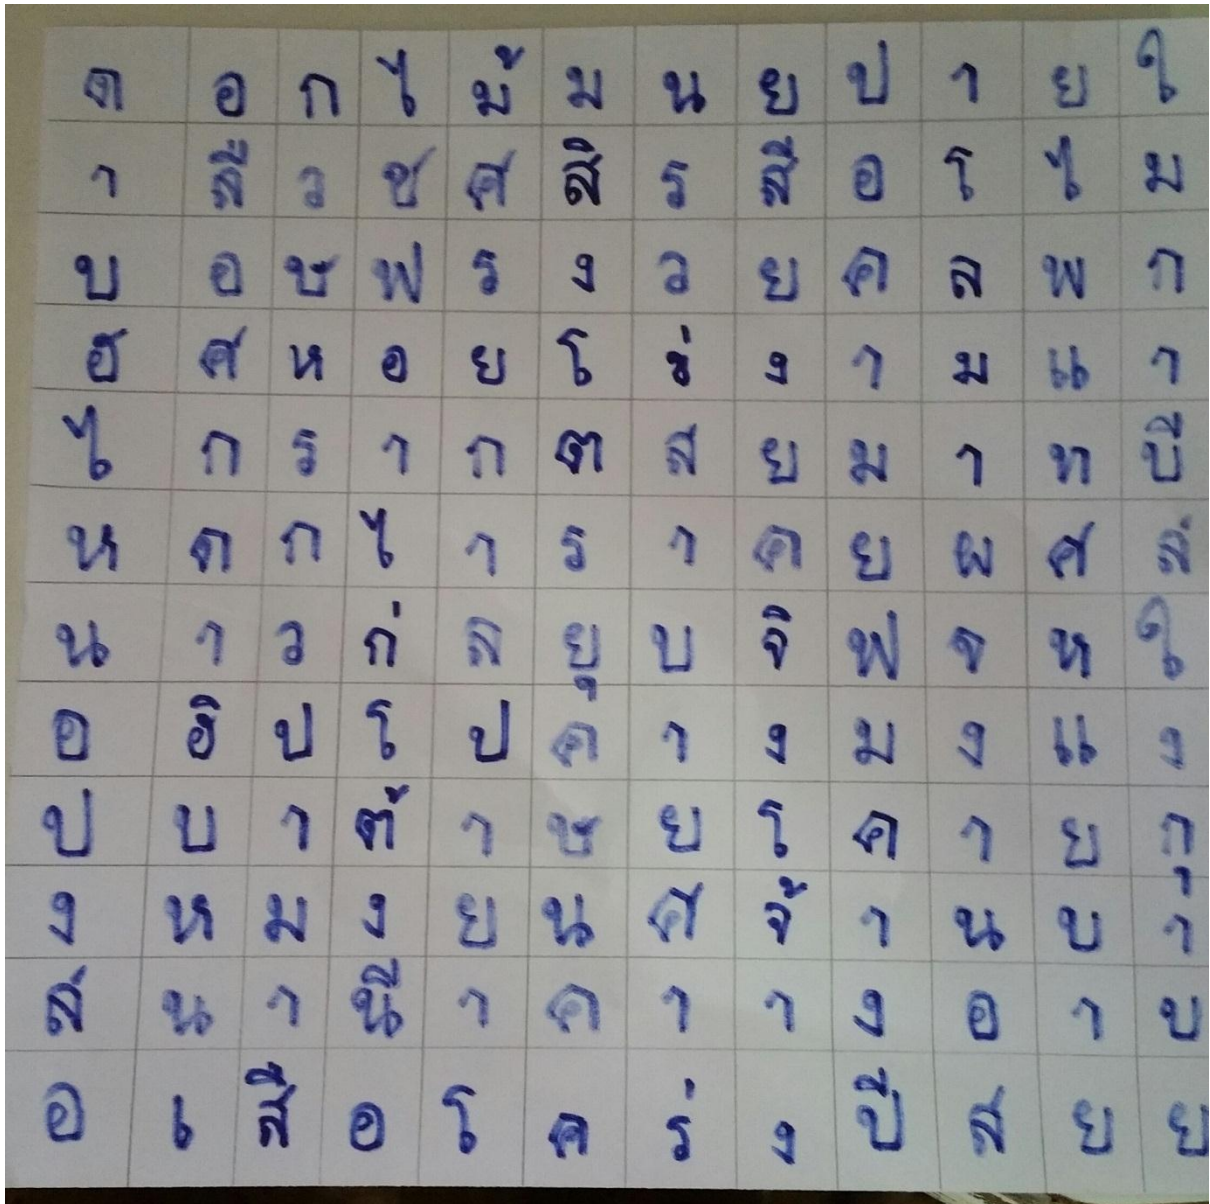 ด อ ก ไ ม้ ม น ย ป า ย ใ
า สื ว ช ศ สิ ร สื อ โ ไ ม
บ อ ษ ฟ ร ง ว ย ค ล พ ก
ฮ ศ ห อ ย โ ร่ ง า ม แ า
ไ ก ร า ก ต ส ย ม า ท บี
ห ด ก ไ า ร า ค ย ผ ศ ส่
น า ว ก่ ส ยุ บ จิ ฟ จ ห ใ
อ ฮิ ป โ ป ค า ง ม ง แ ง
ป บ า ต้ า ษ ย โ ค า ย กุ
ง ห ม ง ย น ศ จ้ า น บ า
ส่ น า นี า ค า า ง อ า บ
อ เ สื อ โ ค ร่ ง ปี ส ย ย